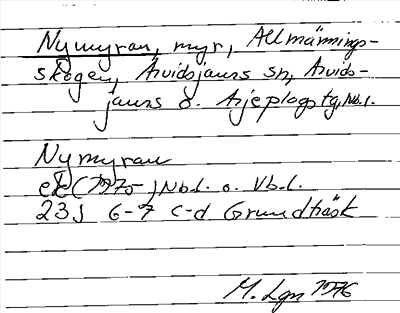 Nymyran, myr, Allmännings-
skogen, Arvidsjaurs sn, Arvids-
jaurs o. Arjeplogs tg, Nb.l.
Nymyran
ek (1975-) Nb.l. o. Vb.l.
23J 6-7 c-d Grundträsk
M. Lgn 1976